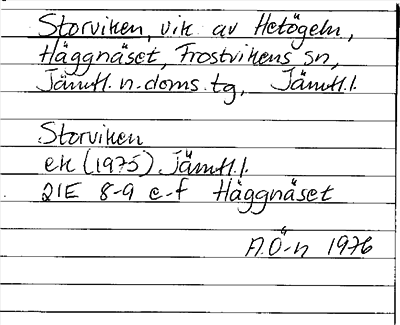 Storviken, vik av Hetögeln,
Häggnäset, Frostvikens sn,
Jämtl. n. doms. tg, Jämtl. l.
Storviken
ek (1975) Jämtl. l.
21E 8-9 e-f Häggnäset
A.Ö-n 1976